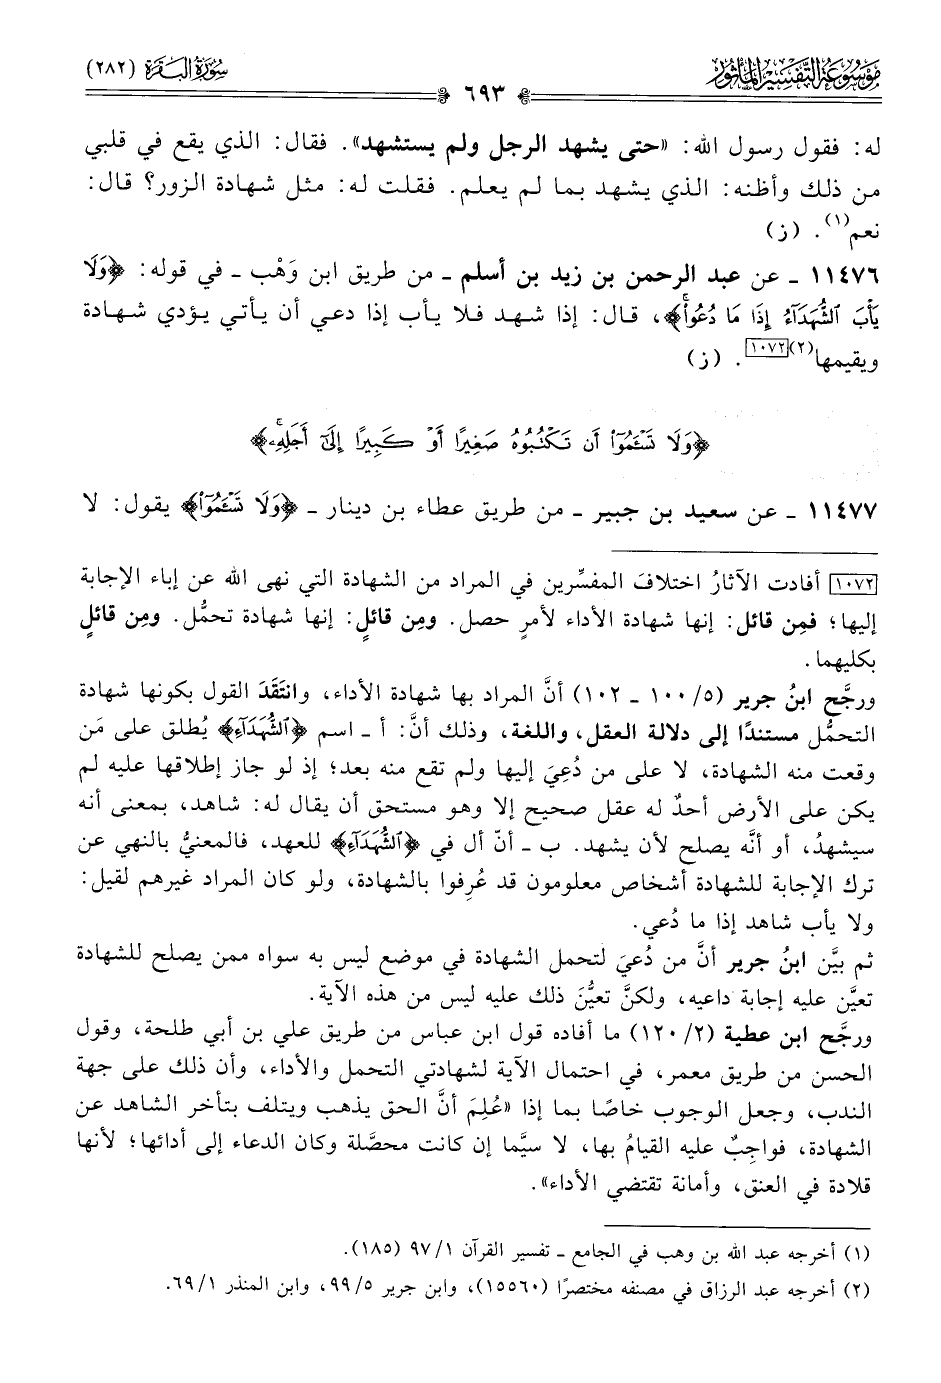 مَوْسُوعَةُ التَّفْسِيرِ المَأْثُورِ
سُورَةُ البَقَرَة (٢٨٢)
٦٩٣
له: فقول رسول الله: «حتى يشهد الرجل ولم يستشهد». فقال: الذي يقع في قلبي
من ذلك وأظنه: الذي يشهد بما لم يعلم. فقلت له: مثل شهادة الزور؟ قال:
نعم(١). (ز)
١١٤٧٦ ـ عن عبد الرحمن بن زيد بن أسلم ـ من طريق ابن وَهْب ـ في قوله: ﴿وَلَا
يَأْبَ ٱلشُّهَدَآءُ إِذَا مَا دُعُوا۟ۚ﴾، قال: إذا شهد فلا يأب إذا دعي أن يأتي يؤدي شهادة
ويقيمها(٢)[١٠٧٢]. (ز)
﴿وَلَا تَسْـَٔمُوٓا۟ أَن تَكْتُبُوهُ صَغِيرًا أَوْ كَبِيرًا إِلَىٰٓ أَجَلِهِۦۚ﴾
١١٤٧٧ ـ عن سعيد بن جبير ـ من طريق عطاء بن دينار ـ ﴿وَلَا تَسْـَٔمُوٓا۟﴾ يقول: لا
[١٠٧٢] أفادت الآثارُ اختلافَ المفسِّرين في المراد من الشهادة التي نهى الله عن إباء الإجابة
إليها؛ فمِن قائل: إنها شهادة الأداء لأمرٍ حصل. ومِن قائلٍ: إنها شهادة تحمُّل. ومِن قائلٍ
بكليهما.
ورجَّح ابنُ جرير (٥/ ١٠٠ ـ ١٠٢) أنَّ المراد بها شهادة الأداء، وانتَقَدَ القول بكونها شهادة
التحمُّل مستندًا إلى دلالة العقل، واللغة، وذلك أنَّ: أ ـ اسم ﴿ٱلشُّهَدَآءُ﴾ يُطلق على مَن
وقعت منه الشهادة، لا على من دُعِيَ إليها ولم تقع منه بعد؛ إذ لو جاز إطلاقها عليه لم
يكن على الأرض أحدٌ له عقل صحيح إلا وهو مستحق أن يقال له: شاهد، بمعنى أنه
سيشهدُ، أو أنَّه يصلح لأن يشهد. ب ـ أنّ أل في ﴿ٱلشُّهَدَآءُ﴾ للعهد، فالمعنيُّ بالنهي عن
ترك الإجابة للشهادة أشخاص معلومون قد عُرِفوا بالشهادة، ولو كان المراد غيرهم لقيل:
ولا يأب شاهد إذا ما دُعي.
ثم بيَّن ابنُ جرير أنَّ من دُعيَ لتحمل الشهادة في موضع ليس به سواه ممن يصلح للشهادة
تعيَّن عليه إجابة داعيه، ولكنَّ تعيُّنَ ذلك عليه ليس من هذه الآية.
ورجَّح ابن عطية (٢/ ١٢٠) ما أفاده قول ابن عباس من طريق علي بن أبي طلحة، وقول
الحسن من طريق معمر، في احتمال الآية لشهادتي التحمل والأداء، وأن ذلك على جهة
الندب، وجعل الوجوب خاصًا بما إذا «عُلِمَ أنَّ الحق يذهب ويتلف بتأخر الشاهد عن
الشهادة، فواجِبٌ عليه القيامُ بها، لا سيَّما إن كانت محصَّلة وكان الدعاء إلى أدائها؛ لأنها
قلادة في العنق، وأمانة تقتضي الأداء».
(١) أخرجه عبد الله بن وهب في الجامع ـ تفسير القرآن ١/ ٩٧ (١٨٥).
(٢) أخرجه عبد الرزاق في مصنفه مختصرًا (١٥٥٦٠)، وابن جرير ٥/ ٩٩، وابن المنذر ١/ ٦٩.